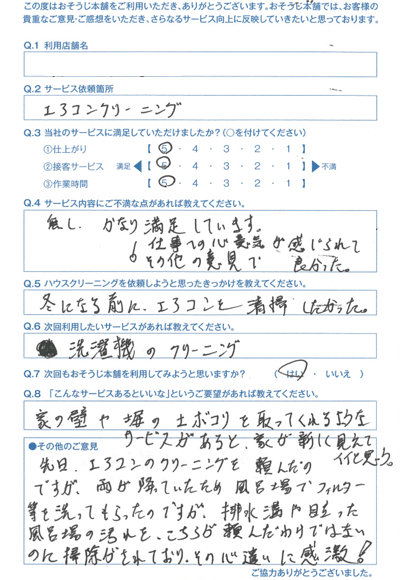 この度はおそうじ本舗をご利用いただき、ありがとうございます。おそうじ本舗では、お客様の
貴重なご意見・ご感想をいただき、さらなるサービス向上に反映していきたいと思っております。
Q.1 利用店舗名
Q.2 サービス依頼箇所
エアコンクリーニング
Q.3 当社のサービスに満足していただけましたか?(○を付けてください)
①仕上がり 【 5 ・ 4 ・ 3 ・ 2 ・ 1 】
②接客サービス 満足 【 5 ・ 4 ・ 3 ・ 2 ・ 1 】 不満
③作業時間 【 5 ・ 4 ・ 3 ・ 2 ・ 1 】
Q.4 サービス内容にご不満な点があれば教えてください。
無し、かなり満足しています。
仕事への心意気が感じられて
その他の意見で 良かった。
Q.5 ハウスクリーニングを依頼しようと思ったきっかけを教えてください。
冬になる前に、エアコンを清掃したかった。
Q.6 次回利用したいサービスがあれば教えてください。
洗濯機のクリーニング
Q.7 次回もおそうじ本舗を利用してみようと思いますか? ( はい ・ いいえ )
Q.8 「こんなサービスあるといいな」というご要望があれば教えてください。
家の壁や塀の土ボコリを取ってくれるような
サービスがあると、家が新しく見えて
イイと思う。
●その他のご意見
先日、エアコンのクリーニングを頼んだの
ですが、雨が降っていたため風呂場でフィルター
等を洗ってもらったのですが、排水溝や目立った
風呂場の汚れを、こちらが頼んだわけではない
のに掃除がされており、その心遣いに感激!
ご協力ありがとうございました。